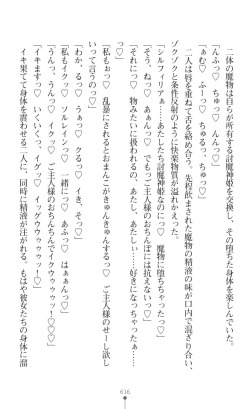 二体の魔物は自らが所有する討魔神姫を交換し、その堕ちた身体を楽しんでいた。
「んふっ♡ ちゅっ♡ んんっ♡」
「ぁむ♡ ふーっ♡ ちゅるっ、ちゅっ♡」
二人は唇を重ねて舌を絡め合う。先程飲まされた魔物の精液の味が口内で混ざり合い、
ゾクゾクと条件反射のように快楽物質が溢れかえった。
「シルフィリアぁ……あたしたち討魔神姫なのにっ♡ 魔物に堕ちちゃったっ♡」
「そう、ねっ♡ あぁんっ♡ でもっご主人様のおちんぽには抗えないっ♡」
「それにっ♡ 物みたいに扱われるの、あたし、あたしぃ……！ 好きになっちゃったっ♡
っ♡」
「私もぉっ♡ 乱暴にされるとおまんこがきゅんきゅんするっ♡ ご主人様のせーし欲し
いって言うのっ♡」
「わか、るっ♡ うぁっ♡ クるっ♡ イき、そっ♡」
「私もイクっ♡ ソルレインっ♡ 一緒にっ♡ あふっ♡ はぁんっ♡」
「うんっ♡ うんっ♡ イクっ♡ ご主人様のおちんちんでイクぅっ♡」
「イキますっ♡ いくいくっ、イグッ♡ イッグウウゥゥゥッ！♡」
イキ果てて身体を震わせる二人に、同時に精液が注がれる。もはや彼女たちの身体に溜
616